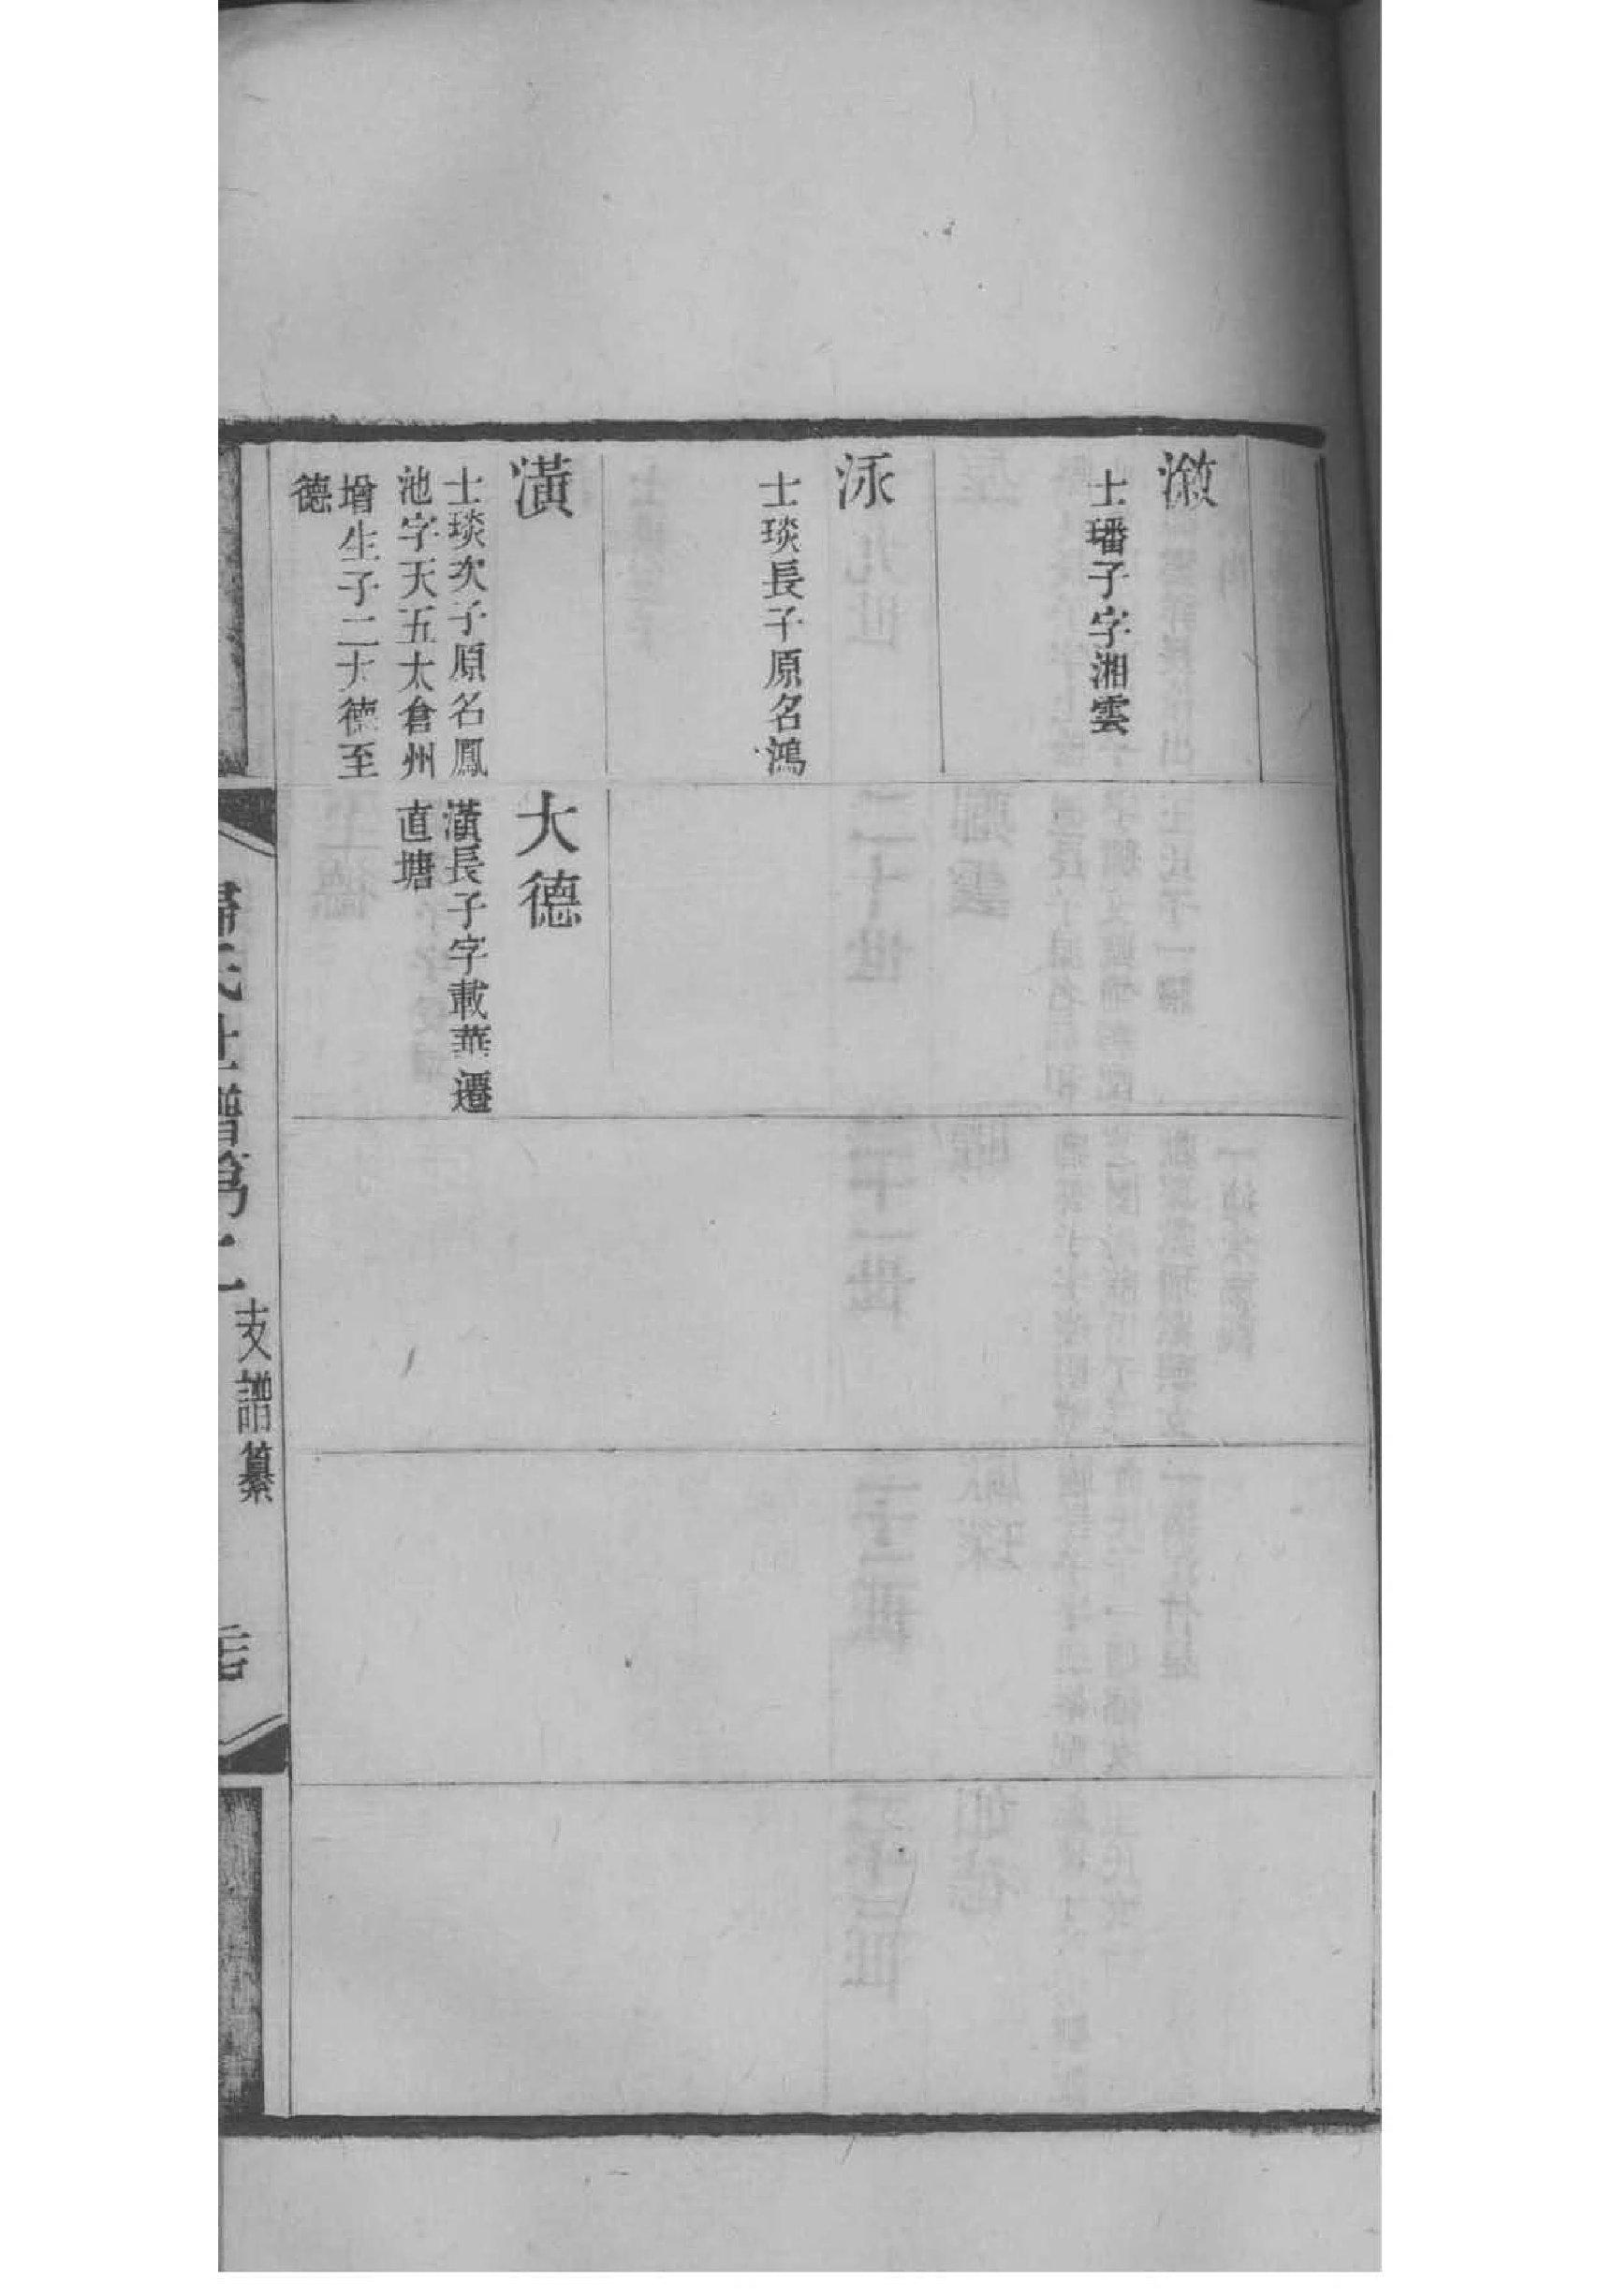 潡
士璠子字湘雲
泳
士琰長子原名鴻
潢
士琰次子原名鳳
池字天五太倉州
增生子二大德至
德
大德
潢長子字載華遷
直塘
歸氏世譜第
支譜纂